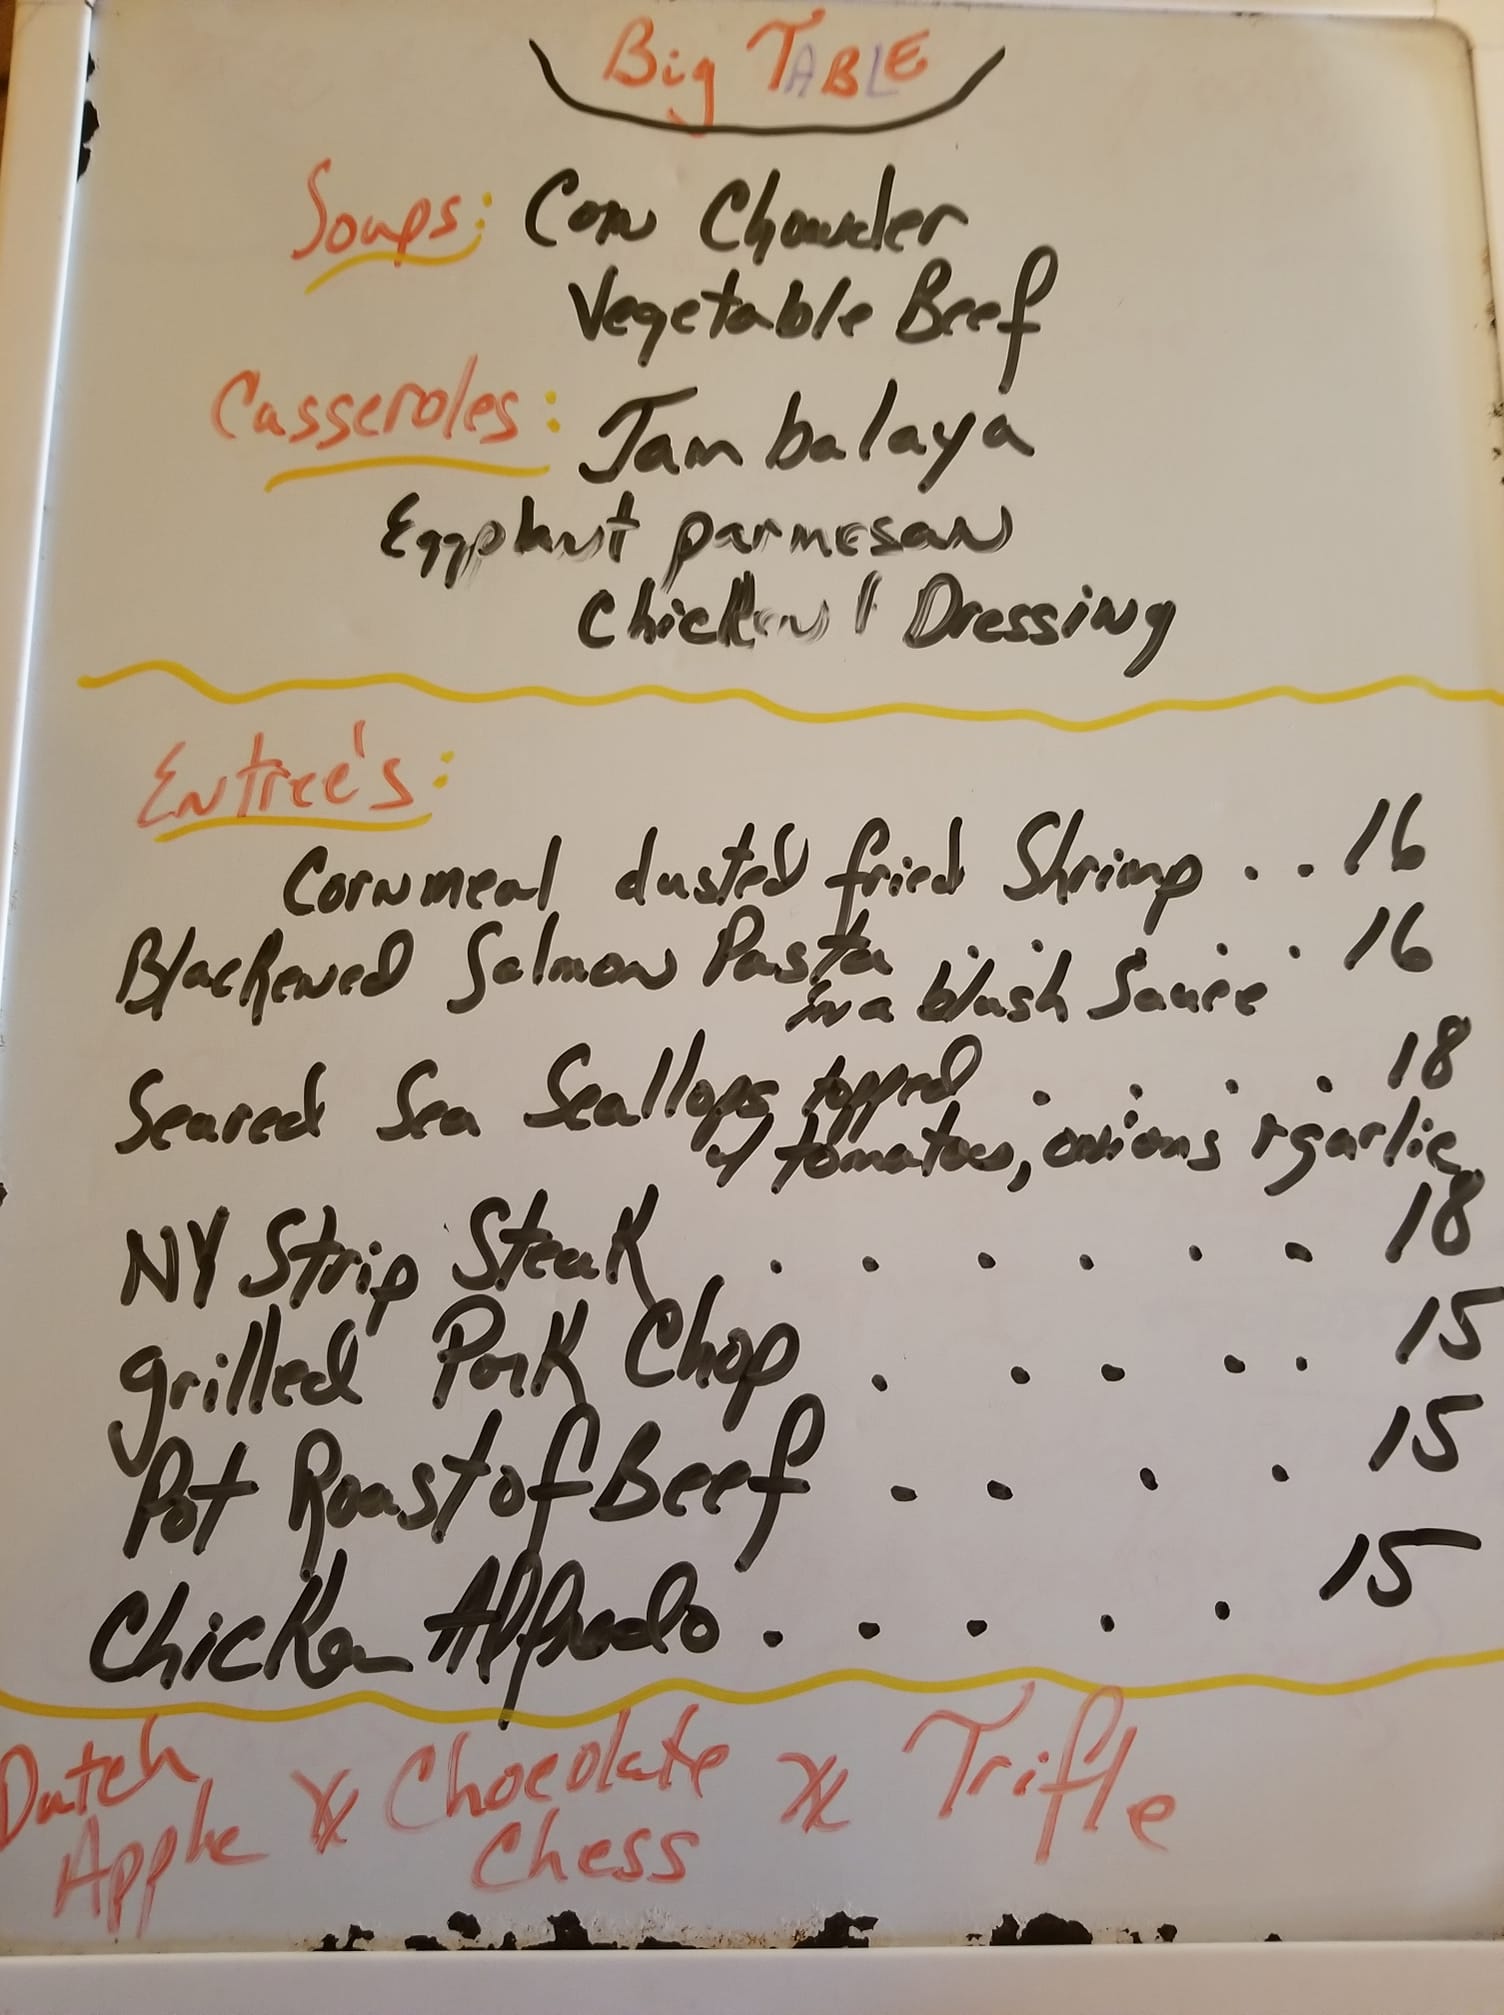 Big TABLE
Soups: Corn Chowder
Vegetable Beef
Casseroles: Jambalaya
Eggplant parmesan
Chicken / Dressing
Entree's:
Cornmeal dusted fried Shrimp . . 16
Blackened Salmon Pasta . . . . 16
in a blush Sauce
Seared Sea Scallops topped . . . . 18
w/ tomatoes, onions + garlic
NY Strip Steak . . . . . . 18
grilled Pork Chop . . . . . 15
Pot Roast of Beef . . . . 15
Chicken Alfredo . . . . . 15
Dutch Apple X Chocolate Chess X Trifle